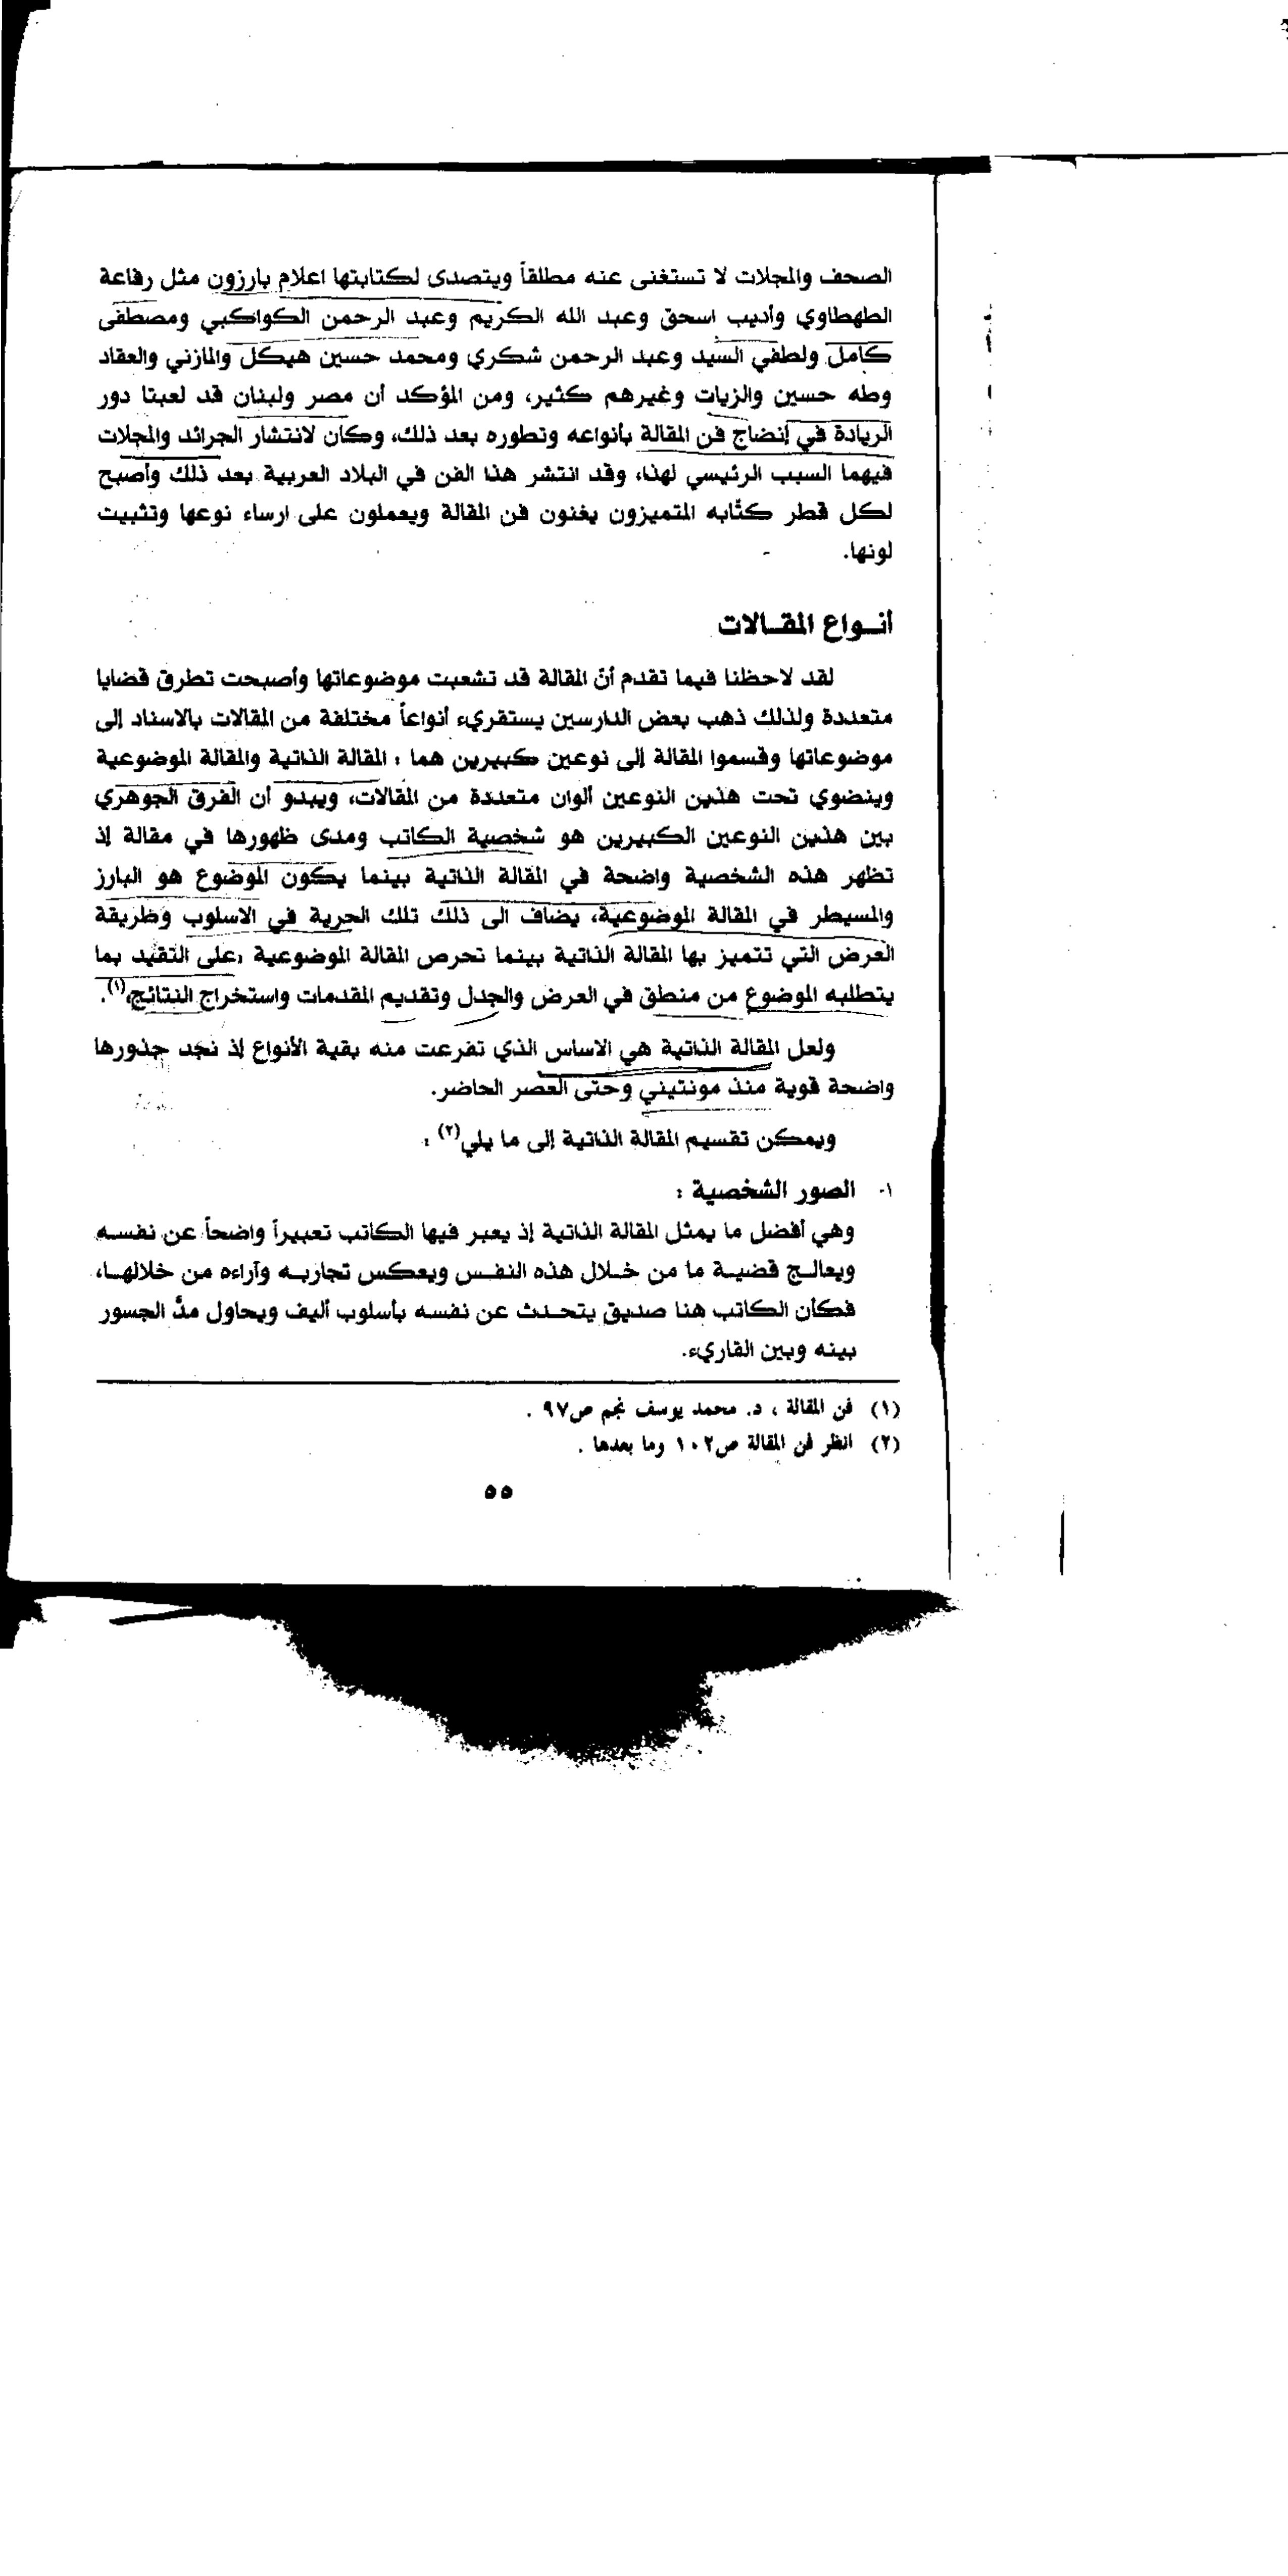 الصحف والمجلات لا تستغنى عنه مطلقاً ويتصدى لكتابتها اعلام بارزون مثل رفاعة
الطهطاوي وأديب اسحق وعبد الله الكريم وعبد الرحمن الكواكبي ومصطفى
كامل ولطفي السيد وعبد الرحمن شكري ومحمد حسين هيكل والمازني والعقاد
وطه حسين والزيات وغيرهم كثير، ومن المؤكد أن مصر ولبنان قد لعبتا دور
الريادة في إنضاج فن المقالة بأنواعه وتطوره بعد ذلك، وكان لانتشار الجرائد والمجلات
فيهما السبب الرئيسي لهذا، وقد انتشر هذا الفن في البلاد العربية بعد ذلك وأصبح
لكل قطر كتّابه المتميزون يغنون فن المقالة ويعملون على ارساء نوعها وتثبيت
لونها.
أنـواع المقـالات
لقد لاحظنا فيما تقدم أنّ المقالة قد تشعبت موضوعاتها وأصبحت تطرق قضايا
متعددة ولذلك ذهب بعض الدارسين يستقريء أنواعاً مختلفة من المقالات بالاسناد إلى
موضوعاتها وقسموا المقالة إلى نوعين كبيرين هما : المقالة الذاتية والمقالة الموضوعية
وينضوي تحت هذين النوعين ألوان متعددة من المقالات، ويبدو أن الفرق الجوهري
بين هذين النوعين الكبيرين هو شخصية الكاتب ومدى ظهورها في مقالة إذ
تظهر هذه الشخصية واضحة في المقالة الذاتية بينما يكون الموضوع هو البارز
والمسيطر في المقالة الموضوعية، يضاف الى ذلك تلك الحرية في الاسلوب وطريقة
العرض التي تتميز بها المقالة الذاتية بينما تحرص المقالة الموضوعية «على التقيد بما
يتطلبه الموضوع من منطق في العرض والجدل وتقديم المقدمات واستخراج النتائج»(١).
ولعل المقالة الذاتية هي الاساس الذي تفرعت منه بقية الأنواع إذ نجد جذورها
واضحة قوية منذ مونتيني وحتى العصر الحاضر.
ويمكن تقسيم المقالة الذاتية إلى ما يلي(٢) :
١- الصور الشخصية :
وهي أفضل ما يمثل المقالة الذاتية إذ يعبر فيها الكاتب تعبيراً واضحاً عن نفسـه
ويعالـج قضيـة ما من خـلال هذه النفـس ويعكـس تجاربـه وآراءه من خلالهـا،
فكأن الكاتب هنا صديق يتحـدث عن نفسـه بأسلوب أليف ويحاول مدّ الجسور
بينه وبين القاريء.
(١) فن المقالة ، د. محمد يوسف نجم ص٩٧ .
(٢) انظر فن المقالة ص١٠٢ وما بعدها .
٥٥